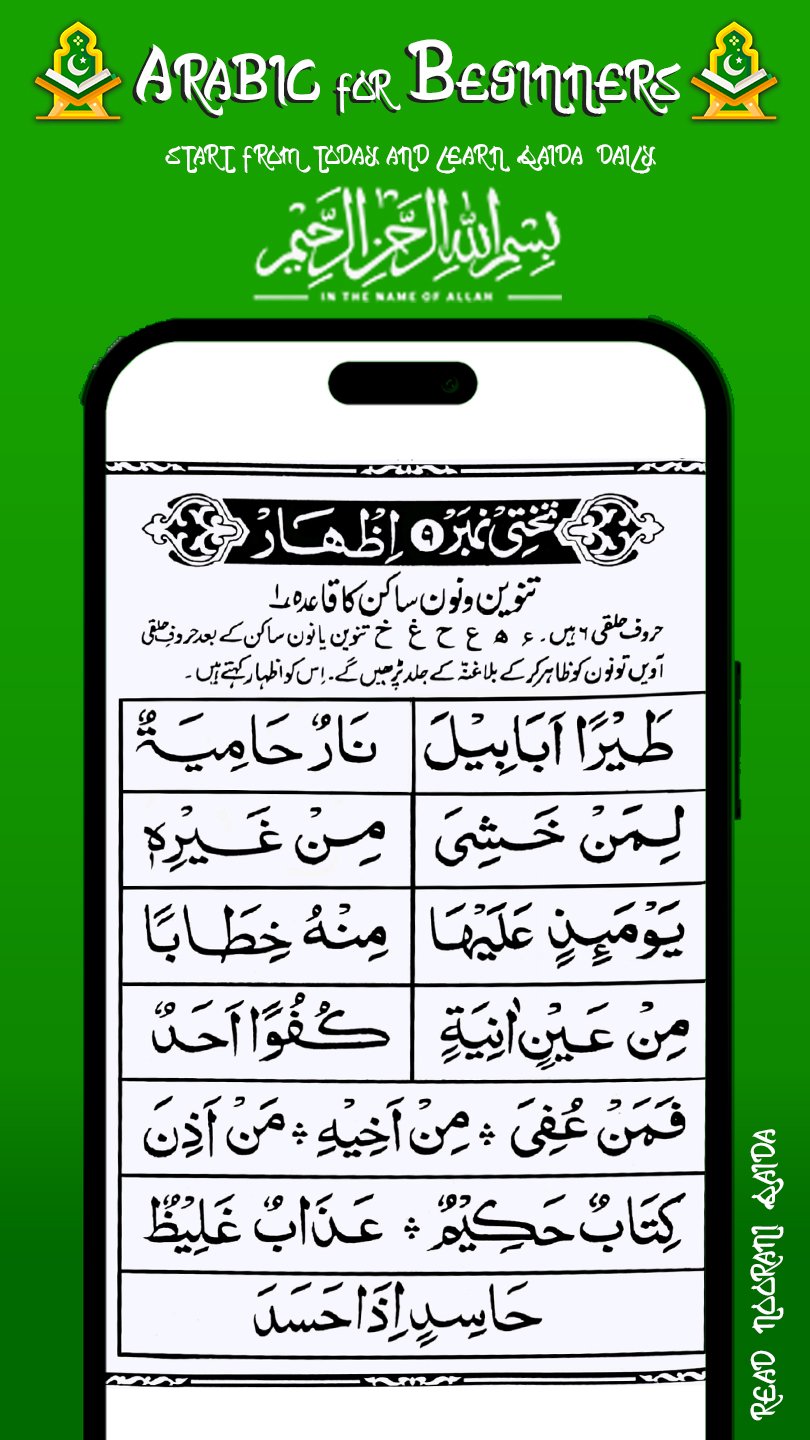 ARABIC FOR BEGINNERS
START FROM TODAY AND LEARN QAIDA DAILY
بِسْمِ اللهِ الرَّحْمٰنِ الرَّحِيْمِ
IN THE NAME OF ALLAH
تختی نمبر ۹ اِظْهَارْ
تنوین و نون ساکن کا قاعدہ ۱
حروف حلقی ۶ ہیں۔ ء ھ ع ح غ خ تنوین یا نون ساکن کے بعد حروف حلقی
آویں تو نون کو ظاہر کر کے بلا غنّہ کے جلد پڑھیں گے۔ اِس کو اظہار کہتے ہیں۔
طَيْرًا اَبَابِيْلَ نَارٌ حَامِيَةٌ
لِمَنْ خَشِىَ مِنْ غَيْرِهٖ
يَوْمَئِذٍ عَلَيْهَا مِنْهُ خِطَابًا
مِنْ عَيْنٍ اٰنِيَةٍ كُفُوًا اَحَدٌ
فَمَنْ عُفِىَ ۞ مِنْ اَخِيْهِ ۞ مَنْ اَذِنَ
كِتَابٌ حَكِيْمٌ ۞ عَذَابٌ غَلِيْظٌ
حَاسِدٍ اِذَا حَسَدَ
READ NOORANI QAIDA